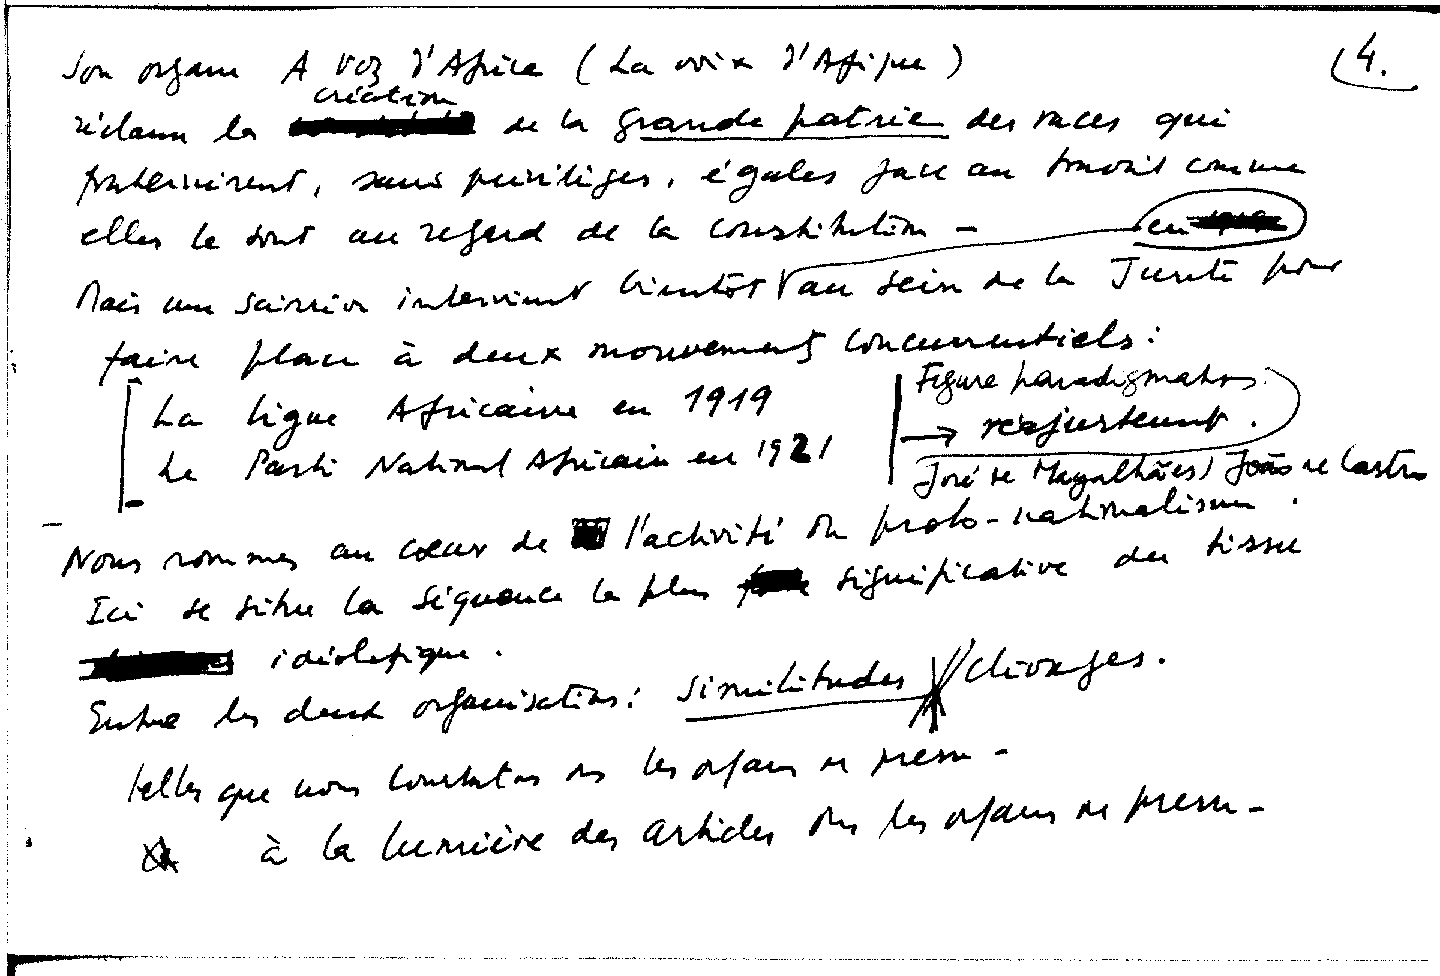 4.
Son organe A Voz d'Africa (La voix d'Afrique)
création
réclame la de la grande patrie des races qui
fraternisent, sans privilèges, égales face au travail comme
elles le sont au regard de la constitution -
en
Mais une scission intervient bientôt au sein de la Junte pour
faire place à deux mouvements concurrentiels :
La Ligue Africaine en 1919
Le Parti National Africain en 1921
Figure paradigmatique
→ réajustement.
José de Magalhães / João de Castro
Nous sommes au cœur de l'activité du proto-nationalisme.
Ici se situe la séquence la plus significative du tissu
idéologique.
Entre les deux organisations : similitudes // clivages.
telles que nous constatons ds les organes de presse -
à la lumière des articles ds les organes de presse -